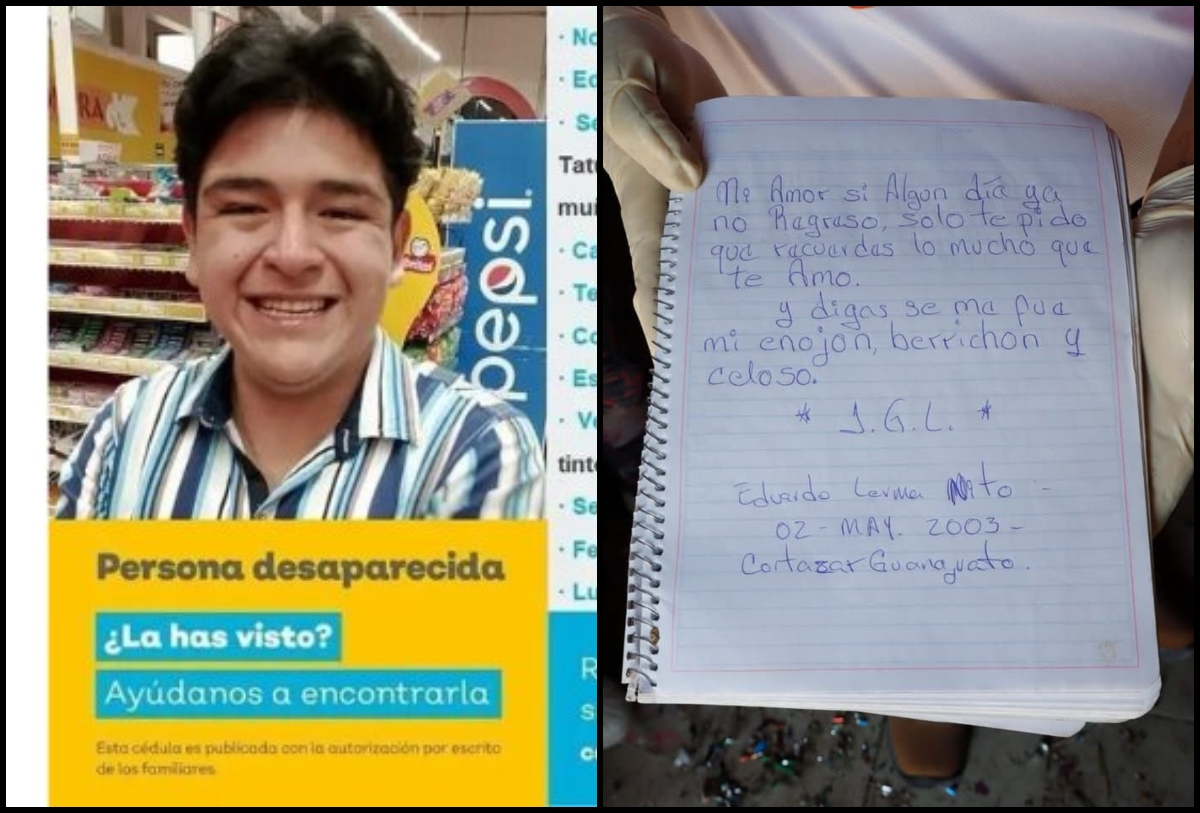 pepsi
Persona desaparecida
¿La has visto?
Ayúdanos a encontrarla
Esta cédula es publicada con la autorización por escrito
de los familiares.
Tatu
mur
tint
Mi Amor si Algun día ya
no Regreso, solo te pido
que recuerdes lo mucho que
te Amo.
y digas se me fue
mi enojon, berrichon y
celoso.
* J.G.L. *
Eduardo Lerma Nito -
02 - MAY. 2003 -
Cortazar Guanajuato.